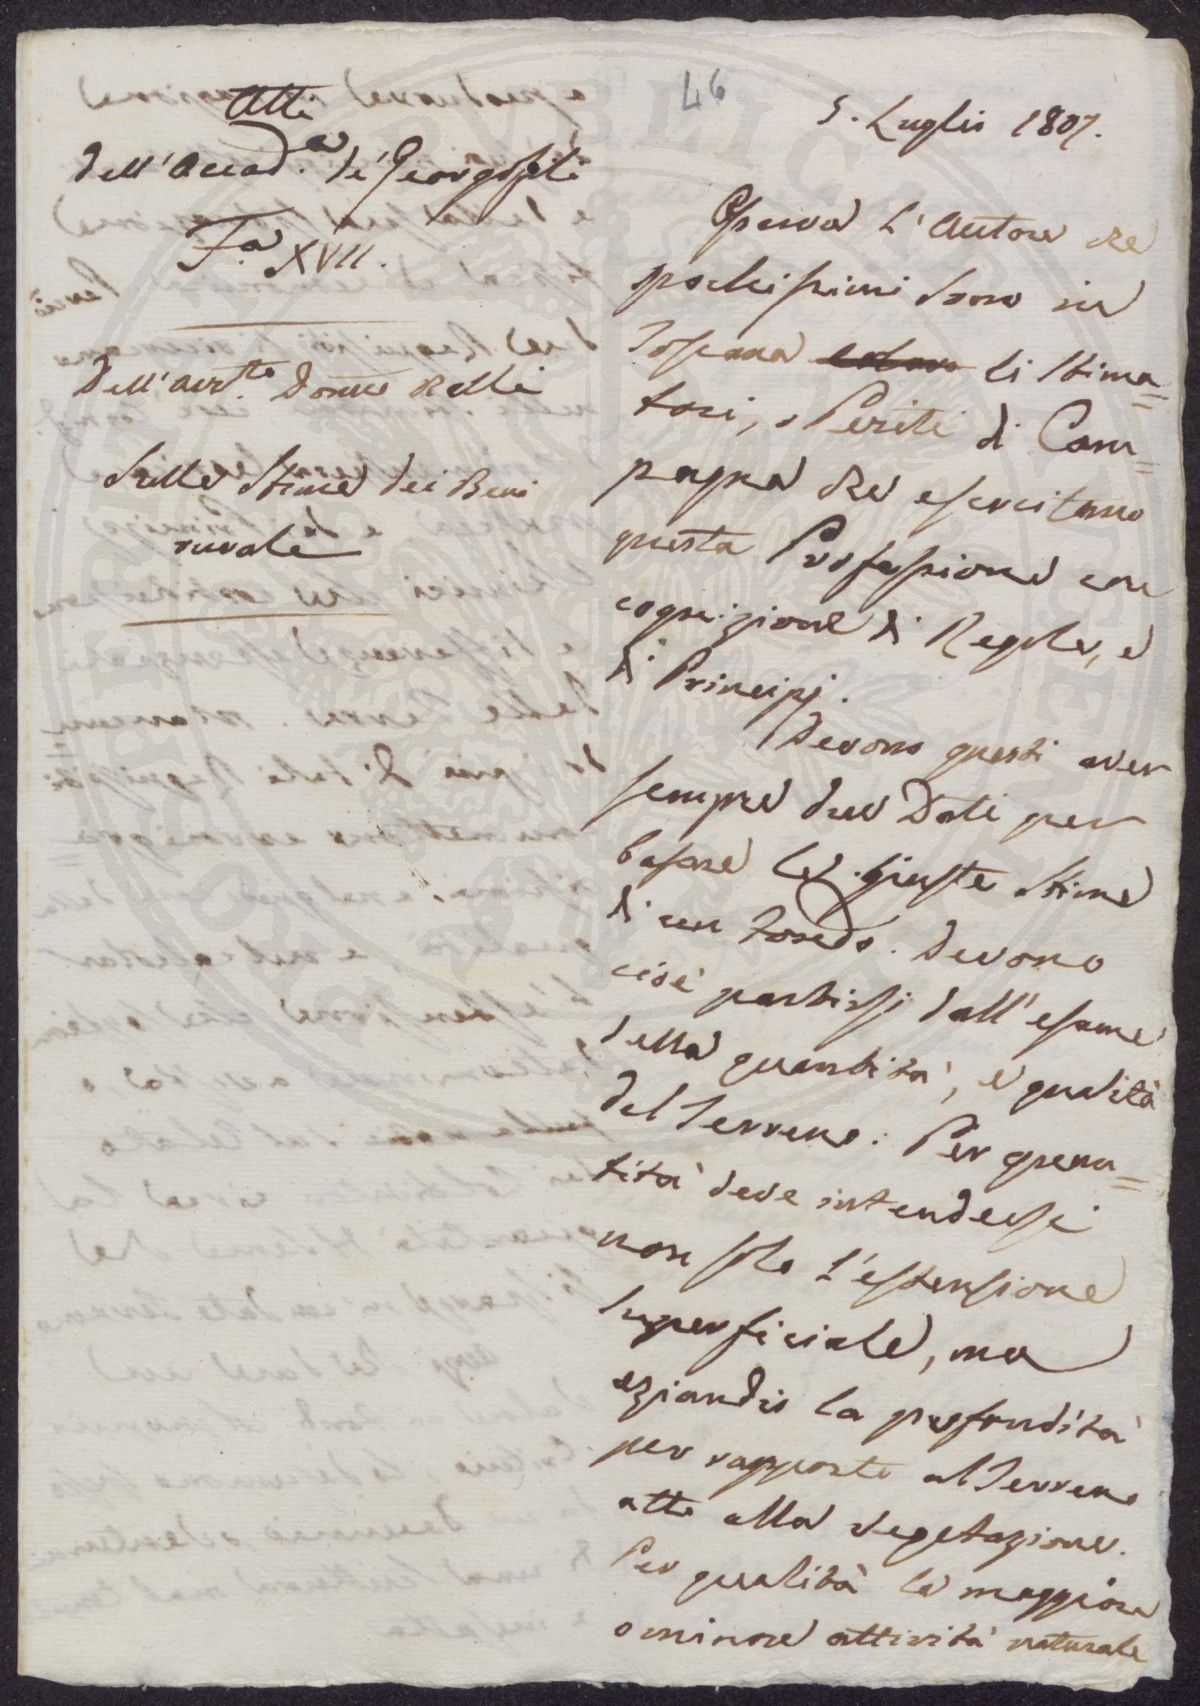 46
Atti
dell'Accad.a de' Georgofili
T.a XVII.
Dell'
Sulle Stime dei Beni
rurale
5. Luglio 1807.
Osserva l'Autore che
pochissimi sono in
Toscana li Stima=
tori, o Periti di Cam=
pagna che esercitano
questa Professione con
cognizione di Regole, e
di Principj.
Devono questi aver
sempre due Dati per
bassare le giuste Stime
di un fondo. Devono
cioè partirsj dall'esame
della quantità, e qualità
del Terreno. Per quan=
tità deve intendersi
non solo l'estensione
superficiale, ma
eziandio la profondità
per rapporto al Terreno
atto alla vegetazione.
Per qualità la maggiore
o minore attività naturale